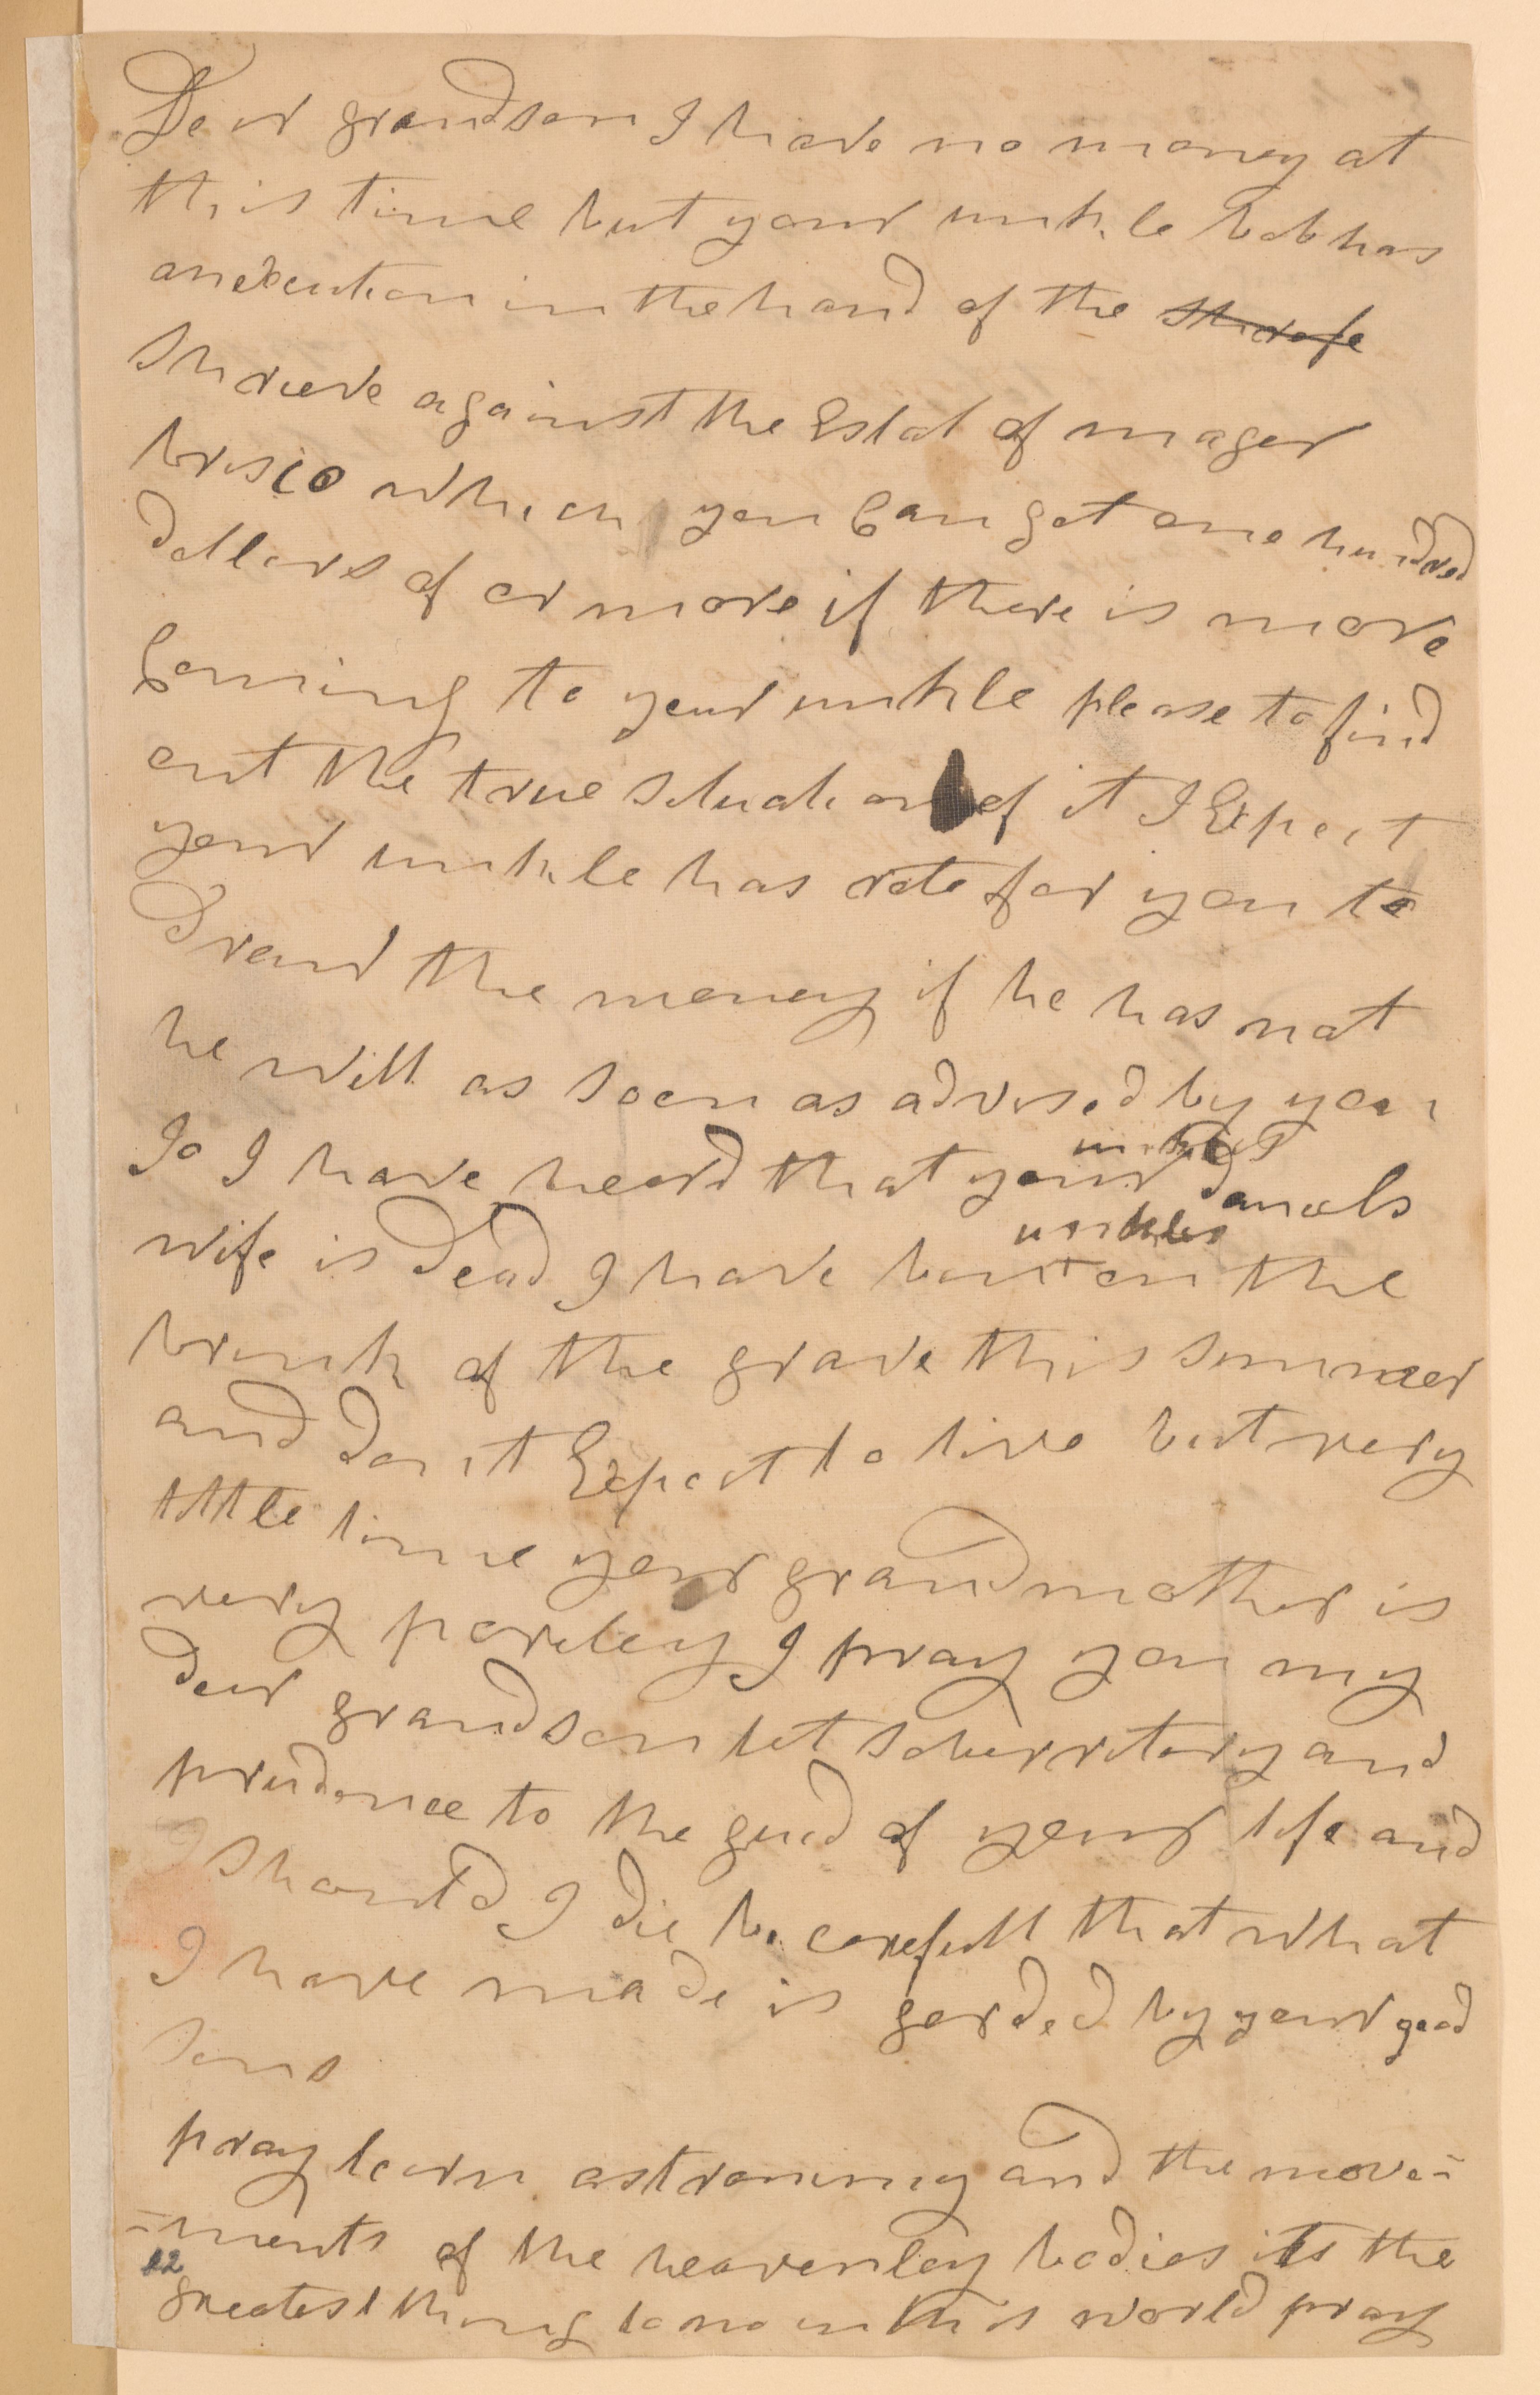 Dear grandson I have no money at
this time but your unkle bob has
an exicution in the hand of the sherefe
shreeve against the Estat of mager
brisco which you Can get one hundred
dollars of or more if there is more
Coming to your unkle please to find
out the true situation of it I Expect
your unkle has rote for you to
Draw the money if he has not
he will as soon as advised by you
Jo I have heard that your unkles danals
unkles
wife is Dead I have bin on the
brink of the grave this summer
and don it Expect to live but very
little time your grandmother is
very poreley I pray you my
dear grandson let soberritory and
prudence to the guid of your life and
should I die be carefull that what
I have made is garded by your good
sons
pray learn astronimy and the move=
=ments of the heavenley bodies its the
12
greatest thing to no in this world pray